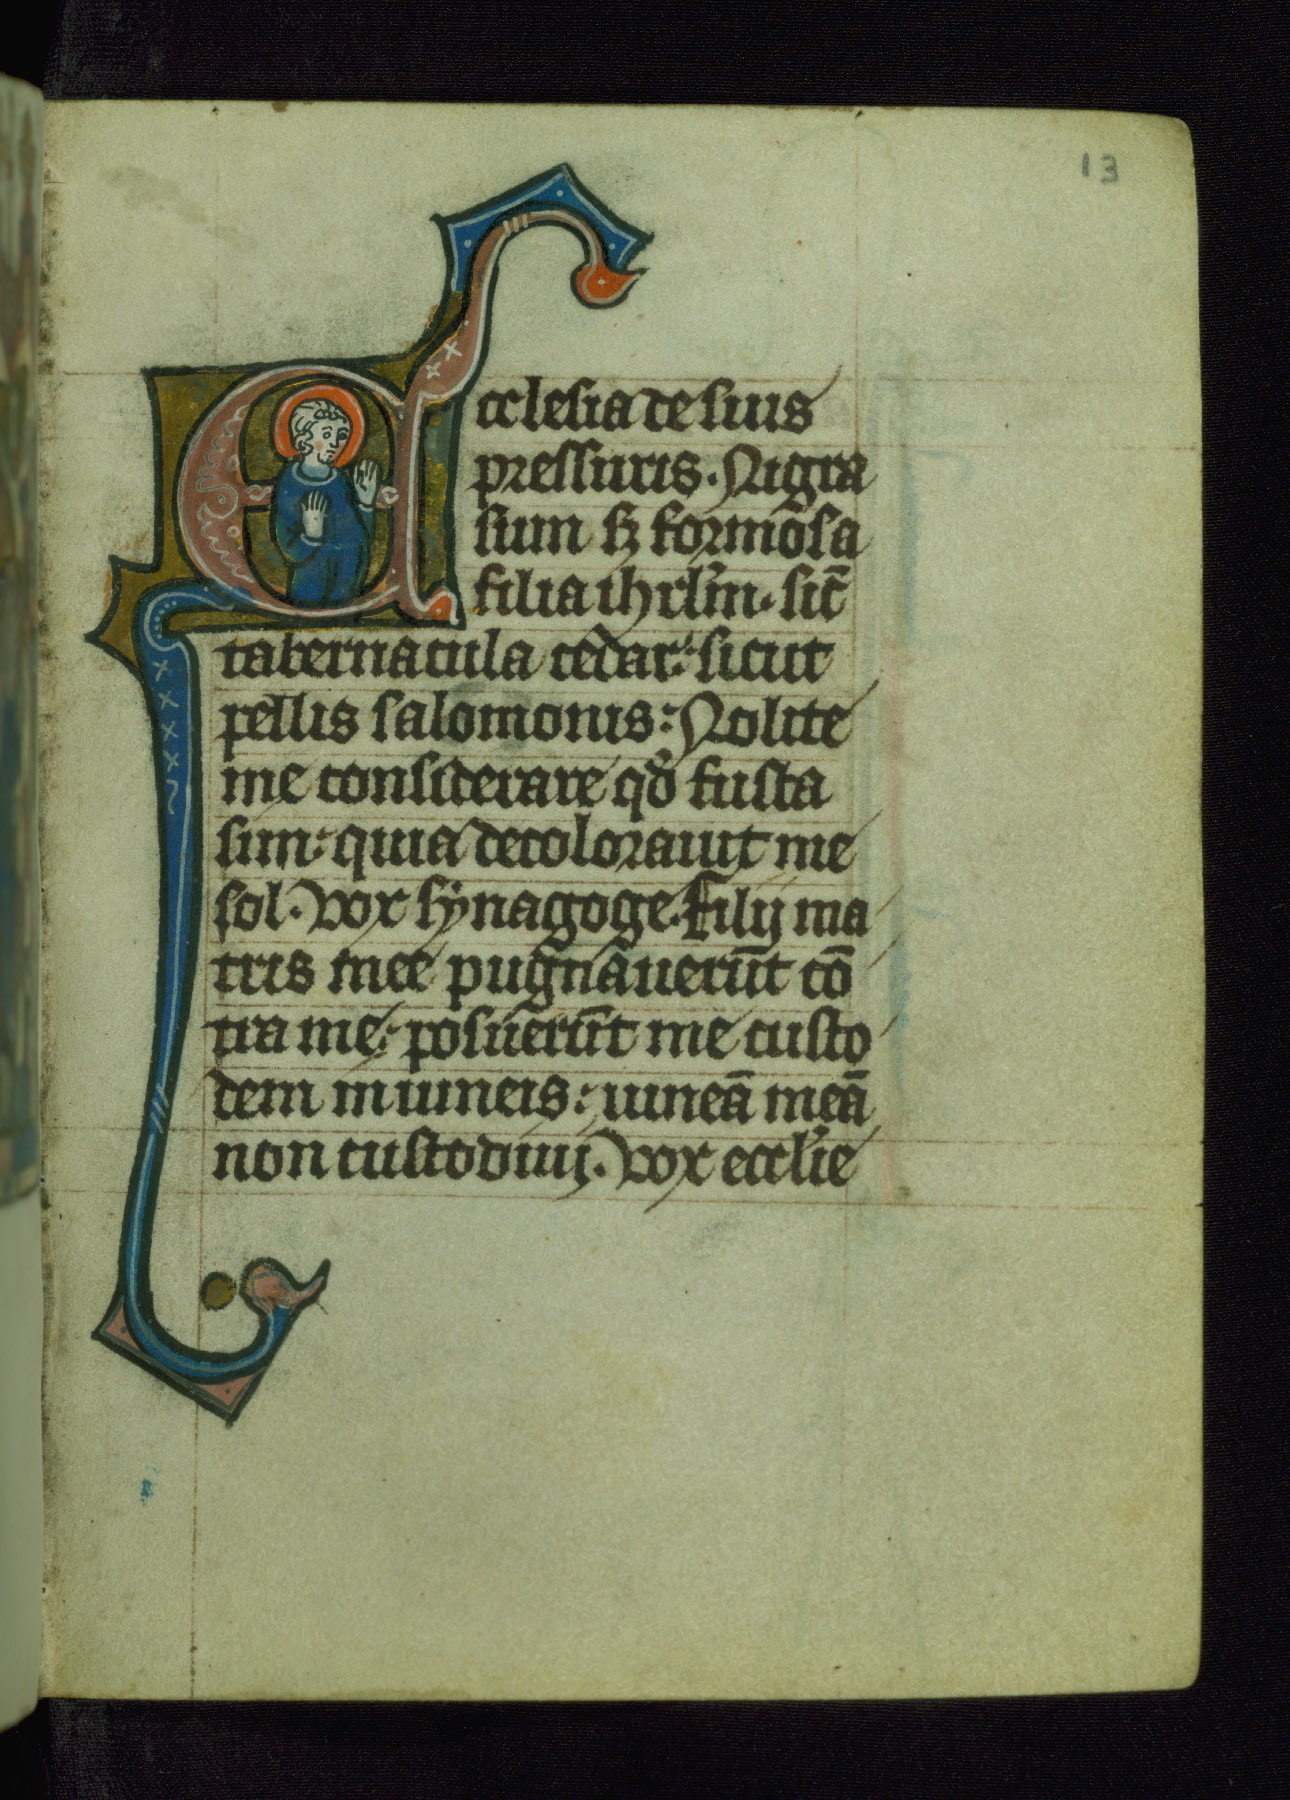 13
Ecclesia de suis
pressuris. Nigra
sum sȝ formosa
filia ihrl̅m. sic̅
tabernacula cedar: sicut
pellis salomonis: Nolite
me considerare qd̓ fusca
sim: quia decolorauit me
sol. Vox synagoge. Filij ma
tris mee pugnauerūt cō
tra me: posuerūt me custo
dem in uineis: uineā meā
non custodiui. Vox eccl̓ie